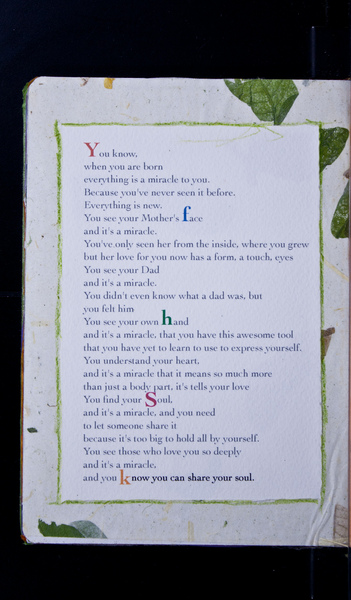 You know,
when you are born
everything is a miracle to you.
Because you've never seen it before.
Everything is new.
You see your Mother's face
and it's a miracle.
You've only seen her from the inside, where you grew
but her love for you now has a form, a touch, eyes
You see your Dad
and it's a miracle.
You didn't even know what a dad was, but
you felt him
You see your own hand
and it's a miracle, that you have this awesome tool
that you have yet to learn to use to express yourself.
You understand your heart,
and it's a miracle that it means so much more
than just a body part, it's tells your love
You find your Soul,
and it's a miracle, and you need
to let someone share it
because it's too big to hold all by yourself.
You see those who love you so deeply
and it's a miracle,
and you know you can share your soul.